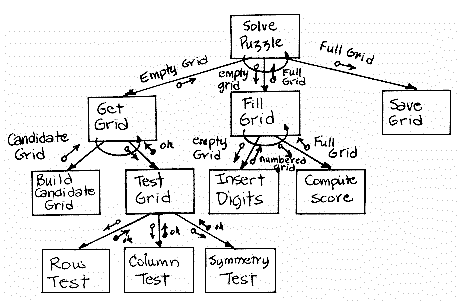 Solve
Puzzle
Empty Grid
empty
grid
Full
Grid
Full Grid
Get
Grid
Fill
Grid
Save
Grid
Candidate
Grid
ok
empty
Grid
numbered
grid
Full
Grid
Build
Candidate
Grid
Test
Grid
Insert
Digits
Compute
Score
ok
ok
ok
Row
Test
Column
Test
Symmetry
Test